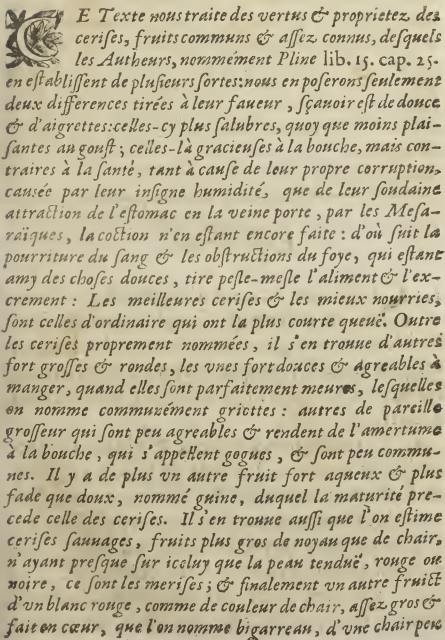 CE Texte nous traite des vertus & proprietez des
cerises, fruits communs & assez connus, desquels
les Autheurs, nommément Pline lib. 15. cap. 25.
en establissent de plusieurs sortes: nous en poserons seulement
deux differences tirées à leur faueur, sçauoir est de douce
& d'aigrettes: celles-cy plus salubres, quoy que moins plai-
santes au goust; celles-là gracieuses à la bouche, mais con-
traires à la santé, tant à cause de leur propre corruption,
causée par leur insigne humidité, que de leur soudaine
attraction de l'estomac en la veine porte, par les Mesa-
raïques, la coction n'en estant encore faite: d'où suit la
pourriture du sang & les obstructions du foye, qui estant
amy des choses douces, tire pesle-mesle l'aliment & l'ex-
crement: Les meilleures cerises & les mieux nourries,
sont celles d'ordinaire qui ont la plus courte queuë. Outre
les cerises proprement nommées, il s'en trouue d'autres
fort grosses & rondes, les vnes fort douces & agreables à
manger, quand elles sont parfaitement meures, lesquelles
on nomme communément griottes: autres de pareille
grosseur qui sont peu agreables & rendent de l'amertume
à la bouche, qui s'appellent gogues, & sont peu commu-
nes. Il y a de plus vn autre fruit fort aqueux & plus
fade que doux, nommé guine, duquel la maturité pre-
cede celle des cerises. Il s'en trouue aussi que l'on estime
cerises sauuages, fruits plus gros de noyau que de chair,
n'ayant presque sur iceluy que la peau tenduë, rouge ou
noire, ce sont les merises; & finalement vn autre fruict
d'vn blanc rouge, comme de couleur de chair, assez gros &
fait en cœur, que l'on nomme bigarreau, d'vne chair peu